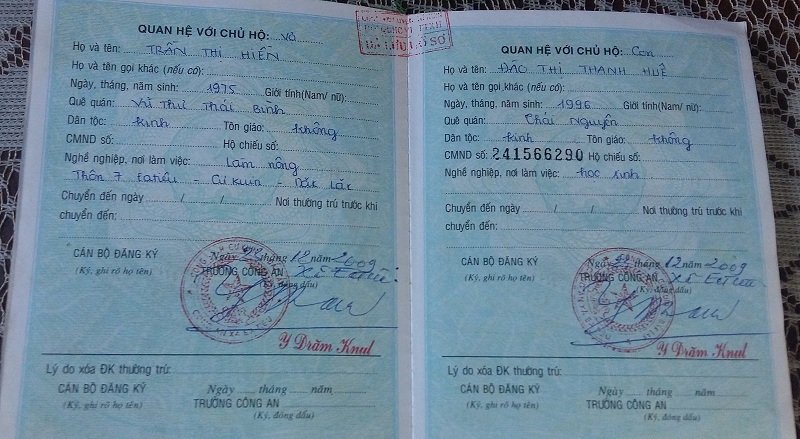 QUAN HỆ VỚI CHỦ HỘ: Vợ
Họ và tên: TRẦN THỊ HIỀN
Họ và tên gọi khác (nếu có):
Ngày, tháng, năm sinh: 1975 Giới tính(Nam/ nữ):
Quê quán: Vũ Thư Thái Bình
Dân tộc: Kinh Tôn giáo: không
CMND số: Hộ chiếu số:
Nghề nghiệp, nơi làm việc: Làm nông
Thôn 7 Eatiêu - Cư kuin - Đắk Lắk
Chuyển đến ngày / / Nơi thường trú trước khi
chuyển đến:
CÁN BỘ ĐĂNG KÝ
(Ký, ghi rõ họ tên)
Ngày tháng 12 năm 2009
TRƯỞNG CÔNG AN Xã Eatiêu
(Ký, đóng dấu)
Y Drăm Knul
Lý do xóa ĐK thường trú:
CÁN BỘ ĐĂNG KÝ
(Ký, ghi rõ họ tên)
Ngày tháng năm
TRƯỞNG CÔNG AN
(Ký, đóng dấu)
ĐÃ LƯU HỒ SƠ
QUAN HỆ VỚI CHỦ HỘ: Con
Họ và tên: ĐÀO THỊ THANH HUÊ
Họ và tên gọi khác (nếu có):
Ngày, tháng, năm sinh: 1996 Giới tính(Nam/ nữ):
Quê quán: Thái Nguyên
Dân tộc: Kinh Tôn giáo: không
CMND số: 241566290 Hộ chiếu số:
Nghề nghiệp, nơi làm việc: học sinh
Chuyển đến ngày / / Nơi thường trú trước khi
chuyển đến:
CÁN BỘ ĐĂNG KÝ
(Ký, ghi rõ họ tên)
Ngày tháng 12 năm 2009
TRƯỞNG CÔNG AN Xã Eatiêu
(Ký, đóng dấu)
Y Drăm Knul
Lý do xóa ĐK thường trú:
CÁN BỘ ĐĂNG KÝ
(Ký, ghi rõ họ tên)
Ngày tháng năm
TRƯỞNG CÔNG AN
(Ký, đóng dấu)